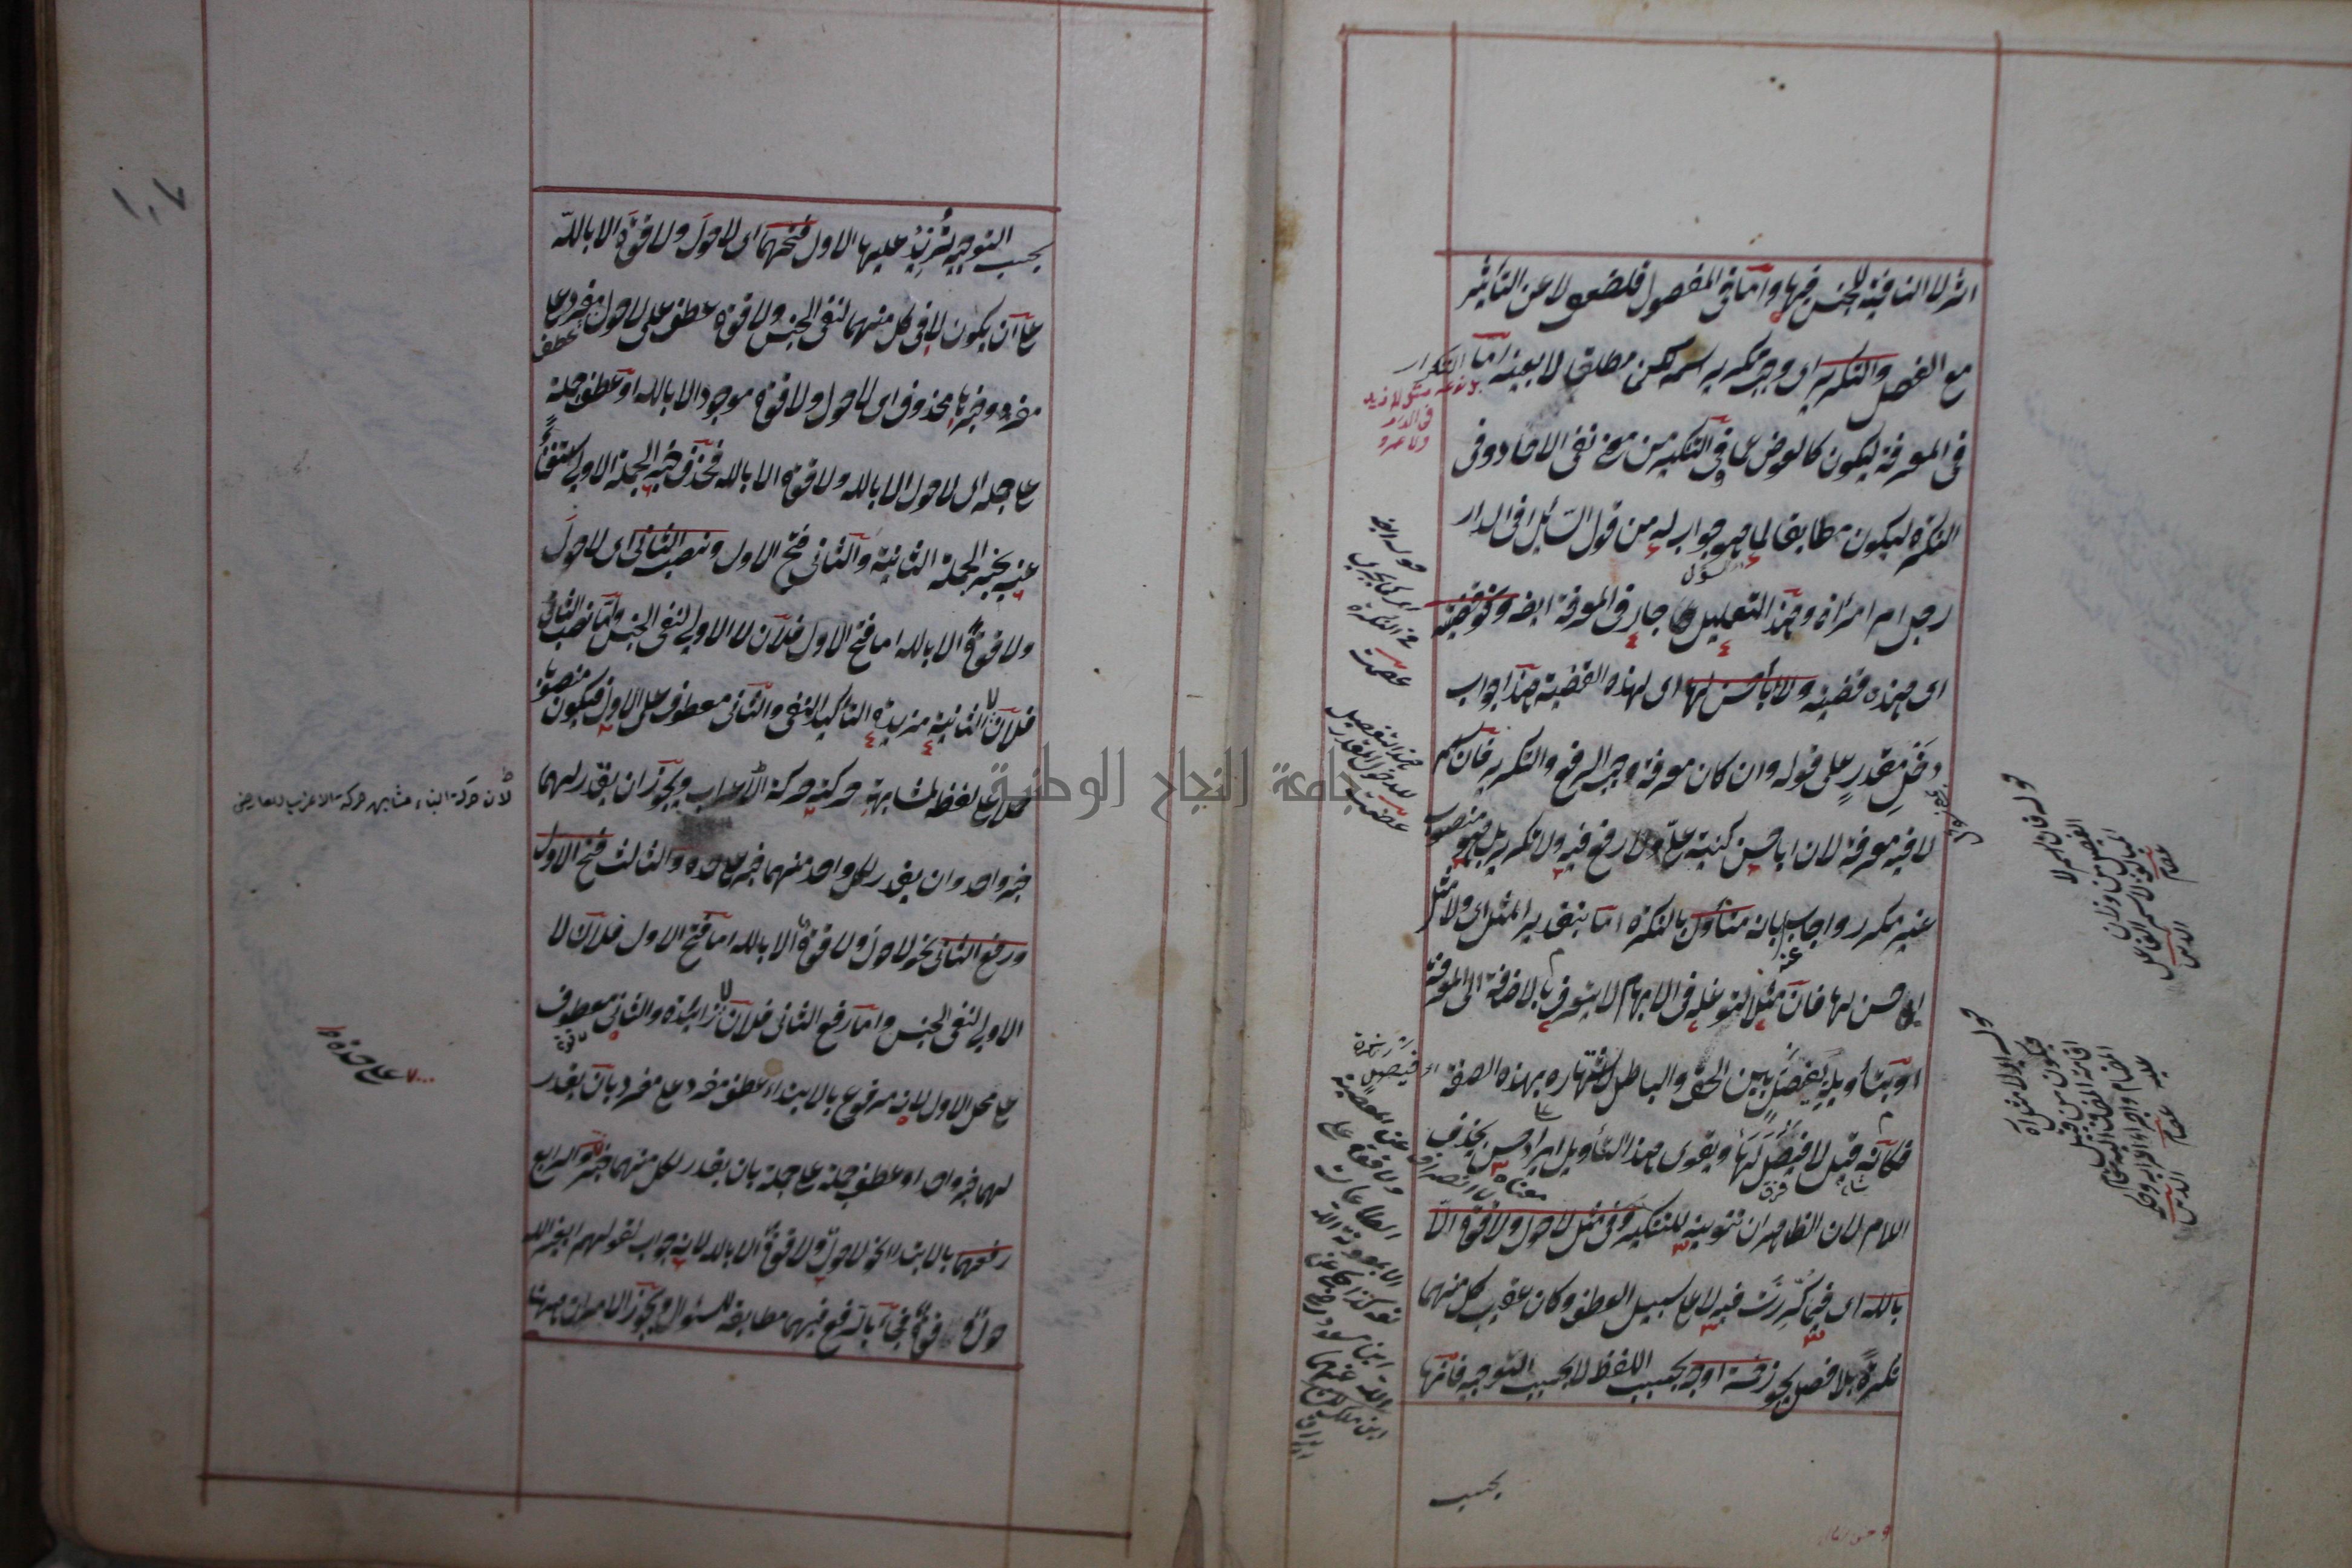 اثر لا النافية للجنس فيها واما في المفصول فلضعف لا عن التأثير
مع الفصل والتكرير اى وجب تكرير اسمه لكن مطلقا لا بعينه اما التكرار
في المعرفة ليكون كالعوض عما في التنكير من معنى نفى الآحاد وفى
النكرة ليكون مطابقا لما هو جواب له من قول السائل افى الدار
رجل ام امرأة وهذا التعليل جار في المعرفة ايضا ونحو قضية
اى هذه قضية ولا ابا حسن لها اى لهذه القضية هذا جواب
دخل مقدر على قوله وان كان معرفة وجب الرفع والتكرير فان اسم
لا فيه معرفة لان ابا حسن كنية على ولا رفع فيه ولا تكرير بل هو منصوب
غير مكرر واجاب عنه بانه متأول بالنكرة اما بتقدير المثل اى ولا مثل
ابى حسن لها فان مثل لتوغله في الابهام لا يتعرف بالاضافة الى المعرفة
او بتأويله بفيصل بين الحق والباطل لاشتهاره بهذه الصفة
فكأنه قيل لا فيصل لها ويقوى هذا التأويل ايراد حسن بحذف
اللام لان الظاهر ان تنوينه للتنكير وفى مثل لا حول ولا قوة الا
بالله اى فيما كررت فيه لا على سبيل العطف وكان عقيب كل منهما
نكرة بلا فصل يجوز خمسة اوجه بحسب اللفظ لا بحسب التوجيه فانها
بحسب
مثل لا زيد
في الدار
ولا عمرو
قوله ايضا
اى كما يجرى
في النكرة
عصمت
قوله فان اسم لا
عصام الدين
عصام الدين
بحسب التوجيه تزيد عليها الاول فتحهما اى لا حول ولا قوة الا بالله
على ان يكون لا في كل منهما لنفى الجنس ولا قوة عطف على لا حول عطف مفرد على
مفرد وخبرهما محذوف اى لا حول ولا قوة موجود الا بالله او عطف جملة
على جملة اى لا حول الا بالله ولا قوة الا بالله فحذف خبر الجملة الاولى استغناء
عنه بخبر الجملة الثانية والثانى فتح الاول ونصب الثانى اى لا حول
ولا قوة الا بالله اما فتح الاول فلان لا الاولى لنفى الجنس واما نصب الثانى
فلان لا الثانية مزيدة لتأكيد النفى والثانى معطوف على الاول فيكون منصوبا
حملا على لفظه لمشابهة حركته حركة الاعراب ويجوز ان يقدر لهما
خبر واحد وان يقدر لكل واحد منهما خبر على حدة والثالث فتح الاول
ورفع الثانى نحو لا حول ولا قوة الا بالله اما فتح الاول فلان لا
الاولى لنفى الجنس واما رفع الثانى فلان لا زائدة والثانى معطوف
على محل الاول لانه مرفوع بالابتداء عطف مفرد على مفرد بان يقدر
لهما خبر واحد او عطف جملة على جملة بان يقدر لكل منهما خبر والرابع
رفعهما بالابتداء نحو لا حول ولا قوة الا بالله لانه جواب لقولهم ابغير الله
حول وقوة فجاء بالرفع فيهما مطابقة للسؤال ويجوز الامران ههنا
لان حركة البناء مشابهة حركة الاعراب للعارض
على حدة
١٠٧
جامعة النجاح الوطنية